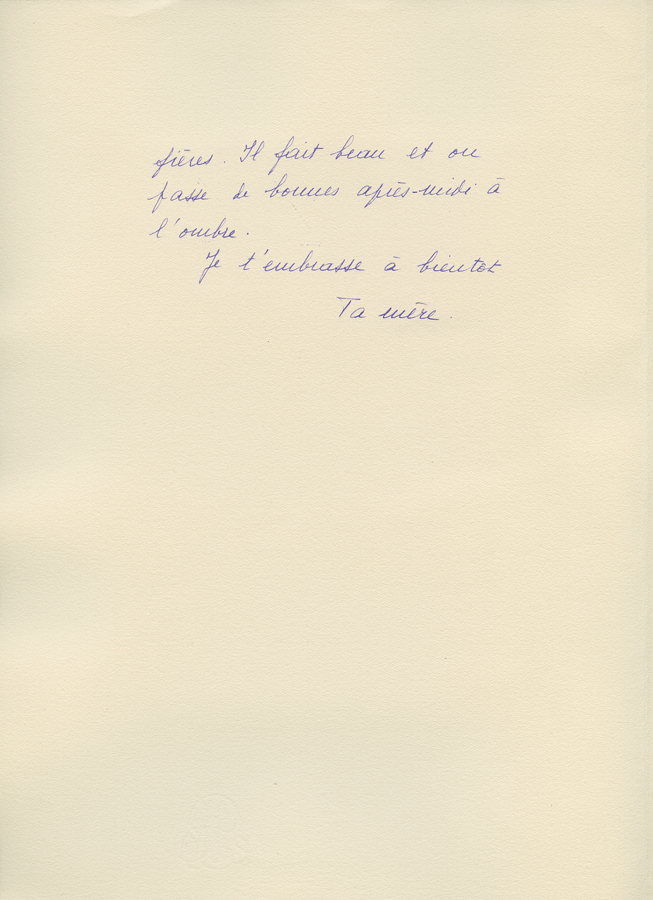 fières. Il fait beau et on
passe de bonnes après-midi à
l'ombre.
Je t'embrasse à bientot
Ta mère.